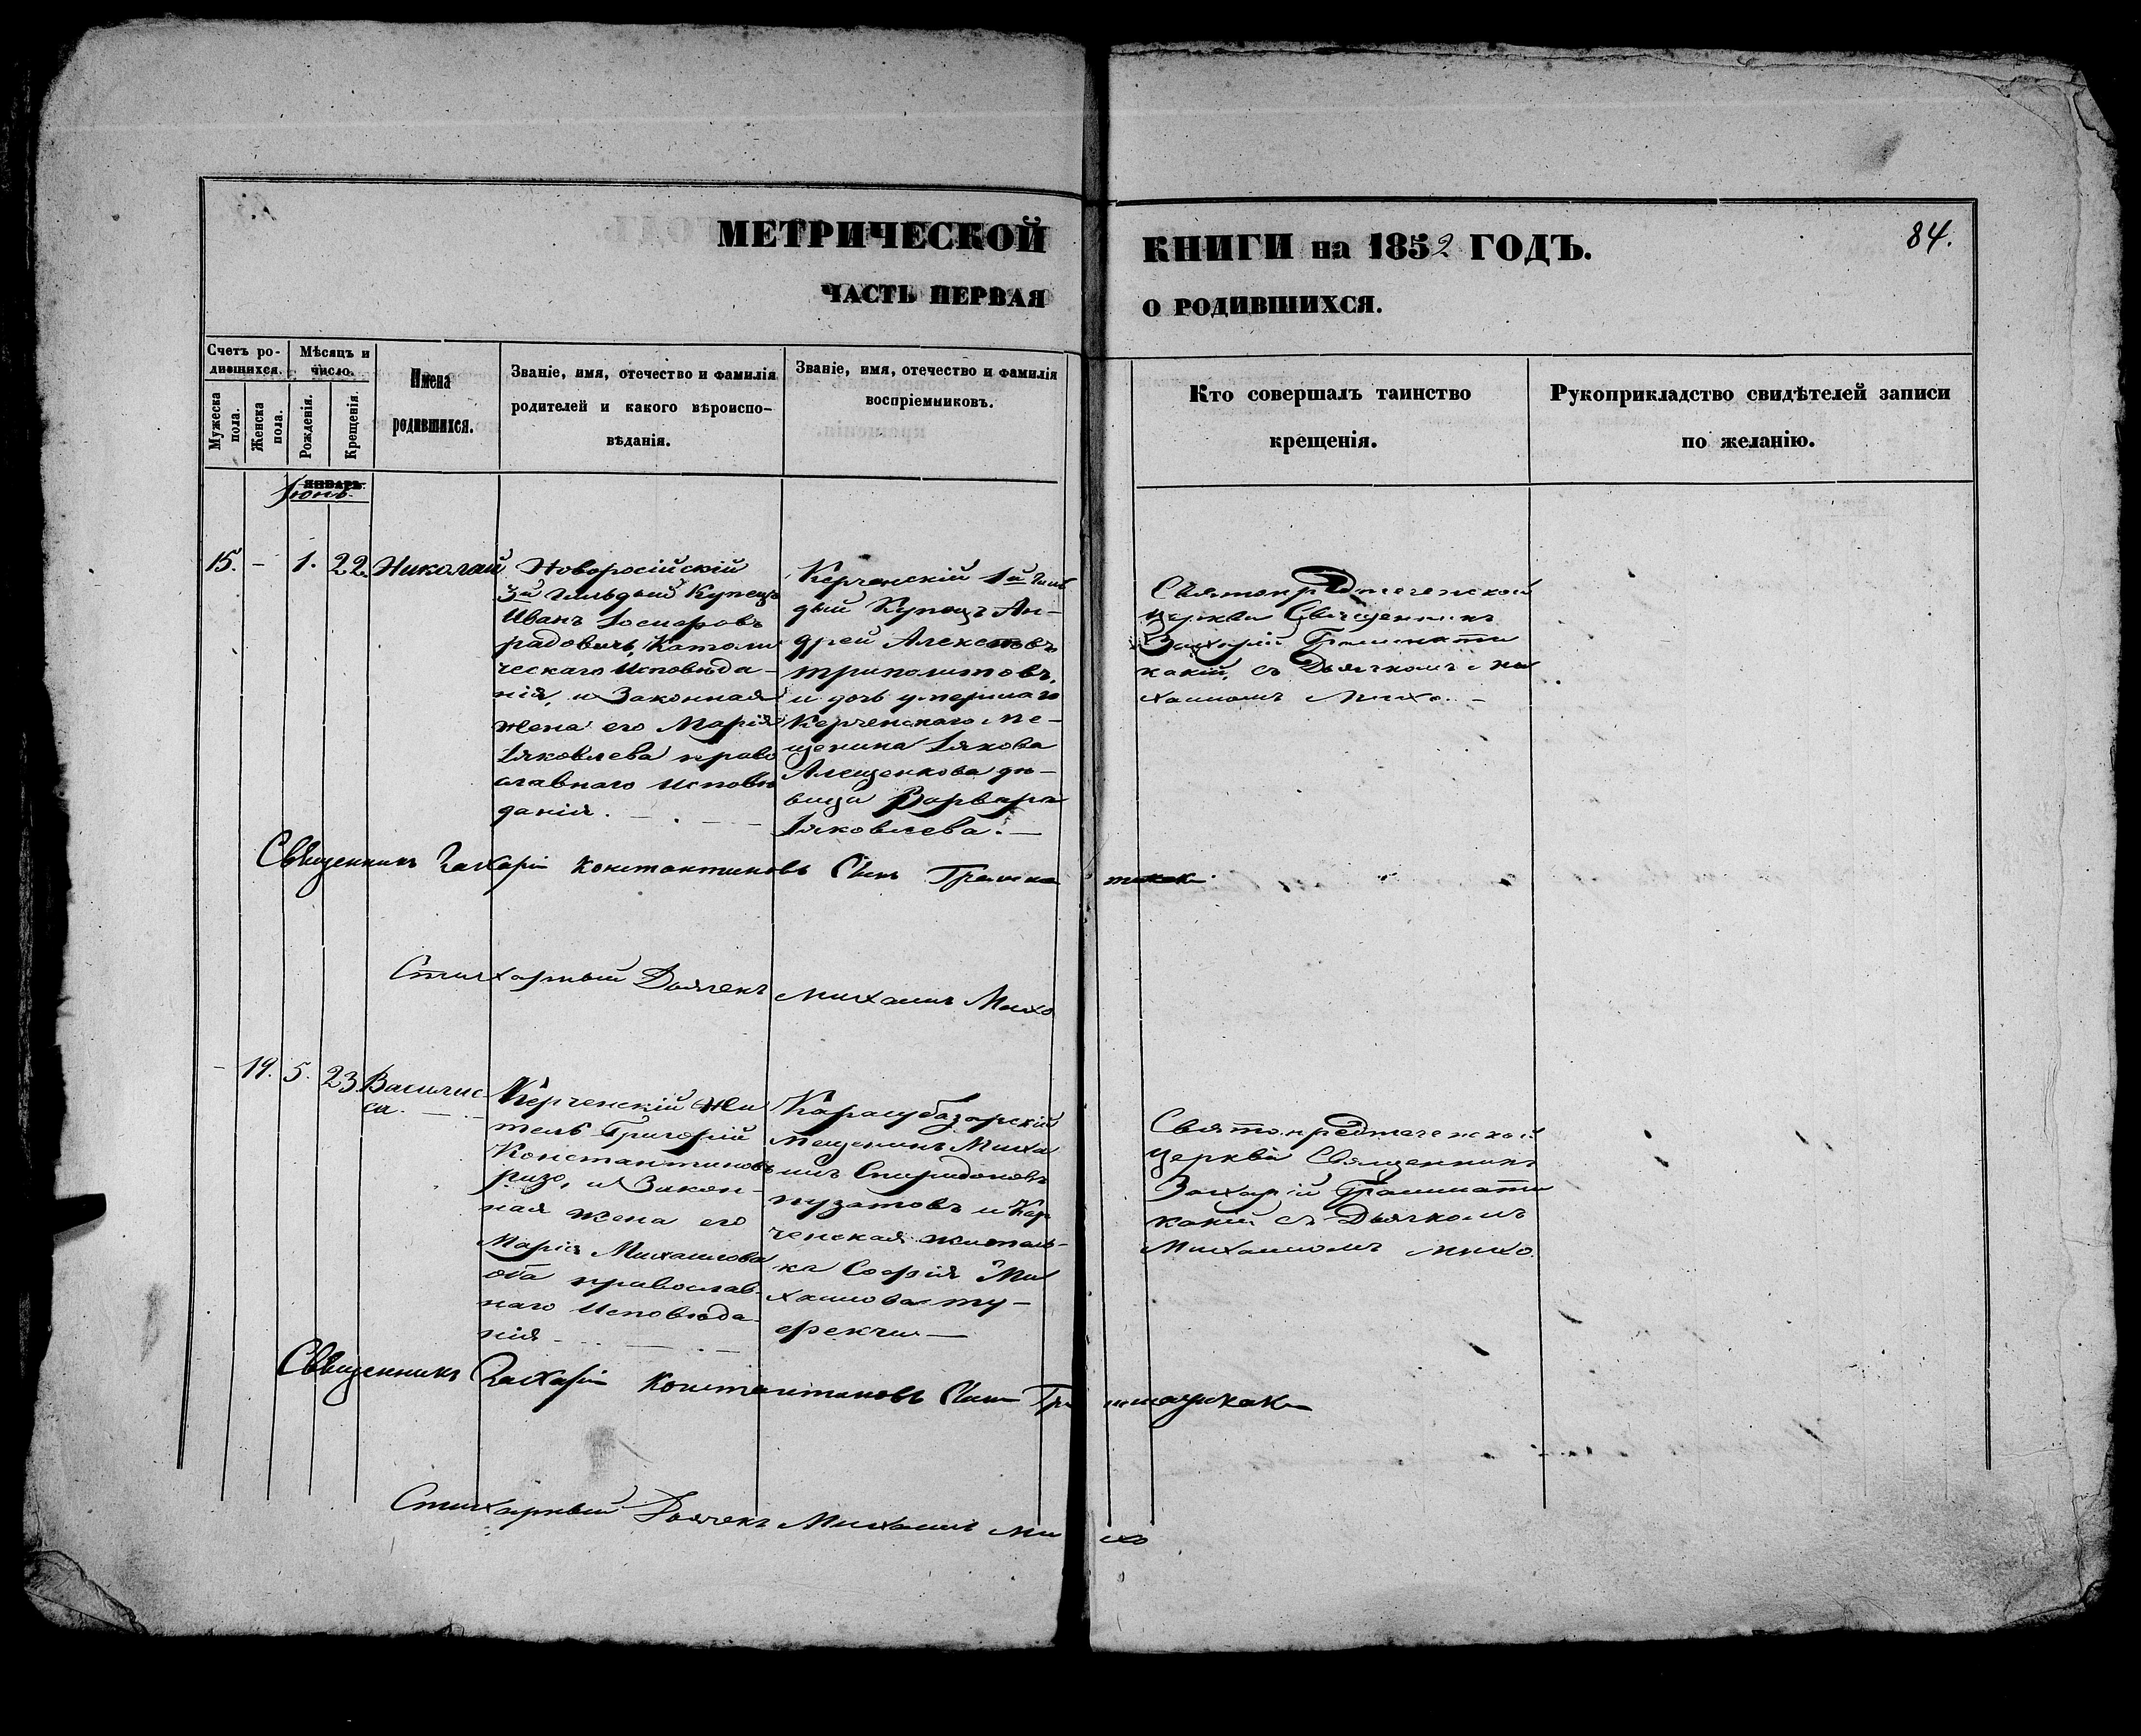 МЕТРИЧЕСКОЙ КНИГИ на 1852 ГОДЪ.
84.
ЧАСТЬ ПЕРВАЯ О РОДИВШИХСЯ.
Счетъ ро-
дившихся.
Мужеска пола.
Женска пола.
Мѣсяцъ и
число.
Рожденія.
Крещенія.
Имена
родившихся.
Званіе, имя, отечество и фамилія
родителей и какого вѣроиспо-
вѣданія.
Званіе, имя, отечество и фамилія
воспріемниковъ.
Кто совершалъ таинство
крещенія.
Рукоприкладство свидѣтелей записи
по желанію.
ЯНВАРЬ.
Іюнь.
15. - 1. 22. Николай
Новоросійскій
3й гильдый Купецъ
Иванъ
радовичь, Католи
ческаго Исповѣда-
нія, и Законная
жена его Марія
Іяковлева право
славнаго Исповѣ
данія.
Керченскій 1й гиль
дый Купецъ Ан-
дрей Алексѣевъ
триполитовъ,
и дочь умершаго
Керченскаго ме-
щенина Іякова
Алещенкова дѣ-
вица Варвара
Іяковлева.
Святопредтеченской
церкви Священникъ
Захарій Граммати
какій, съ Дьячкомъ ми
хаиломъ Михо.
Священникъ Захарій Константиновъ Сынъ Грамматикаки
Стихарный Дьячекъ Михаилъ Михо
- 19. 5. 23. Василис-
са.
Керченскій Жи
тель Григорій
Константиновъ
ризо, и Закон-
ная жена его
Марія Михаилова
оба православ-
наго Исповѣда-
нія
Карасубазарскій
мещенинъ Миха
илъ Спиридоновъ
пузатовъ и Кер
ченская житель-
ка Софія Ми
хаилова ту-
фекчи
Святопредтеченской
церкви Священникъ
Захарій Граммати
какій съ Дьячкомъ
Михаиломъ михо.
Священникъ Захарій Константиновъ Сынъ Грамматикаки
Стихарный Дьячекъ Михаилъ Михо